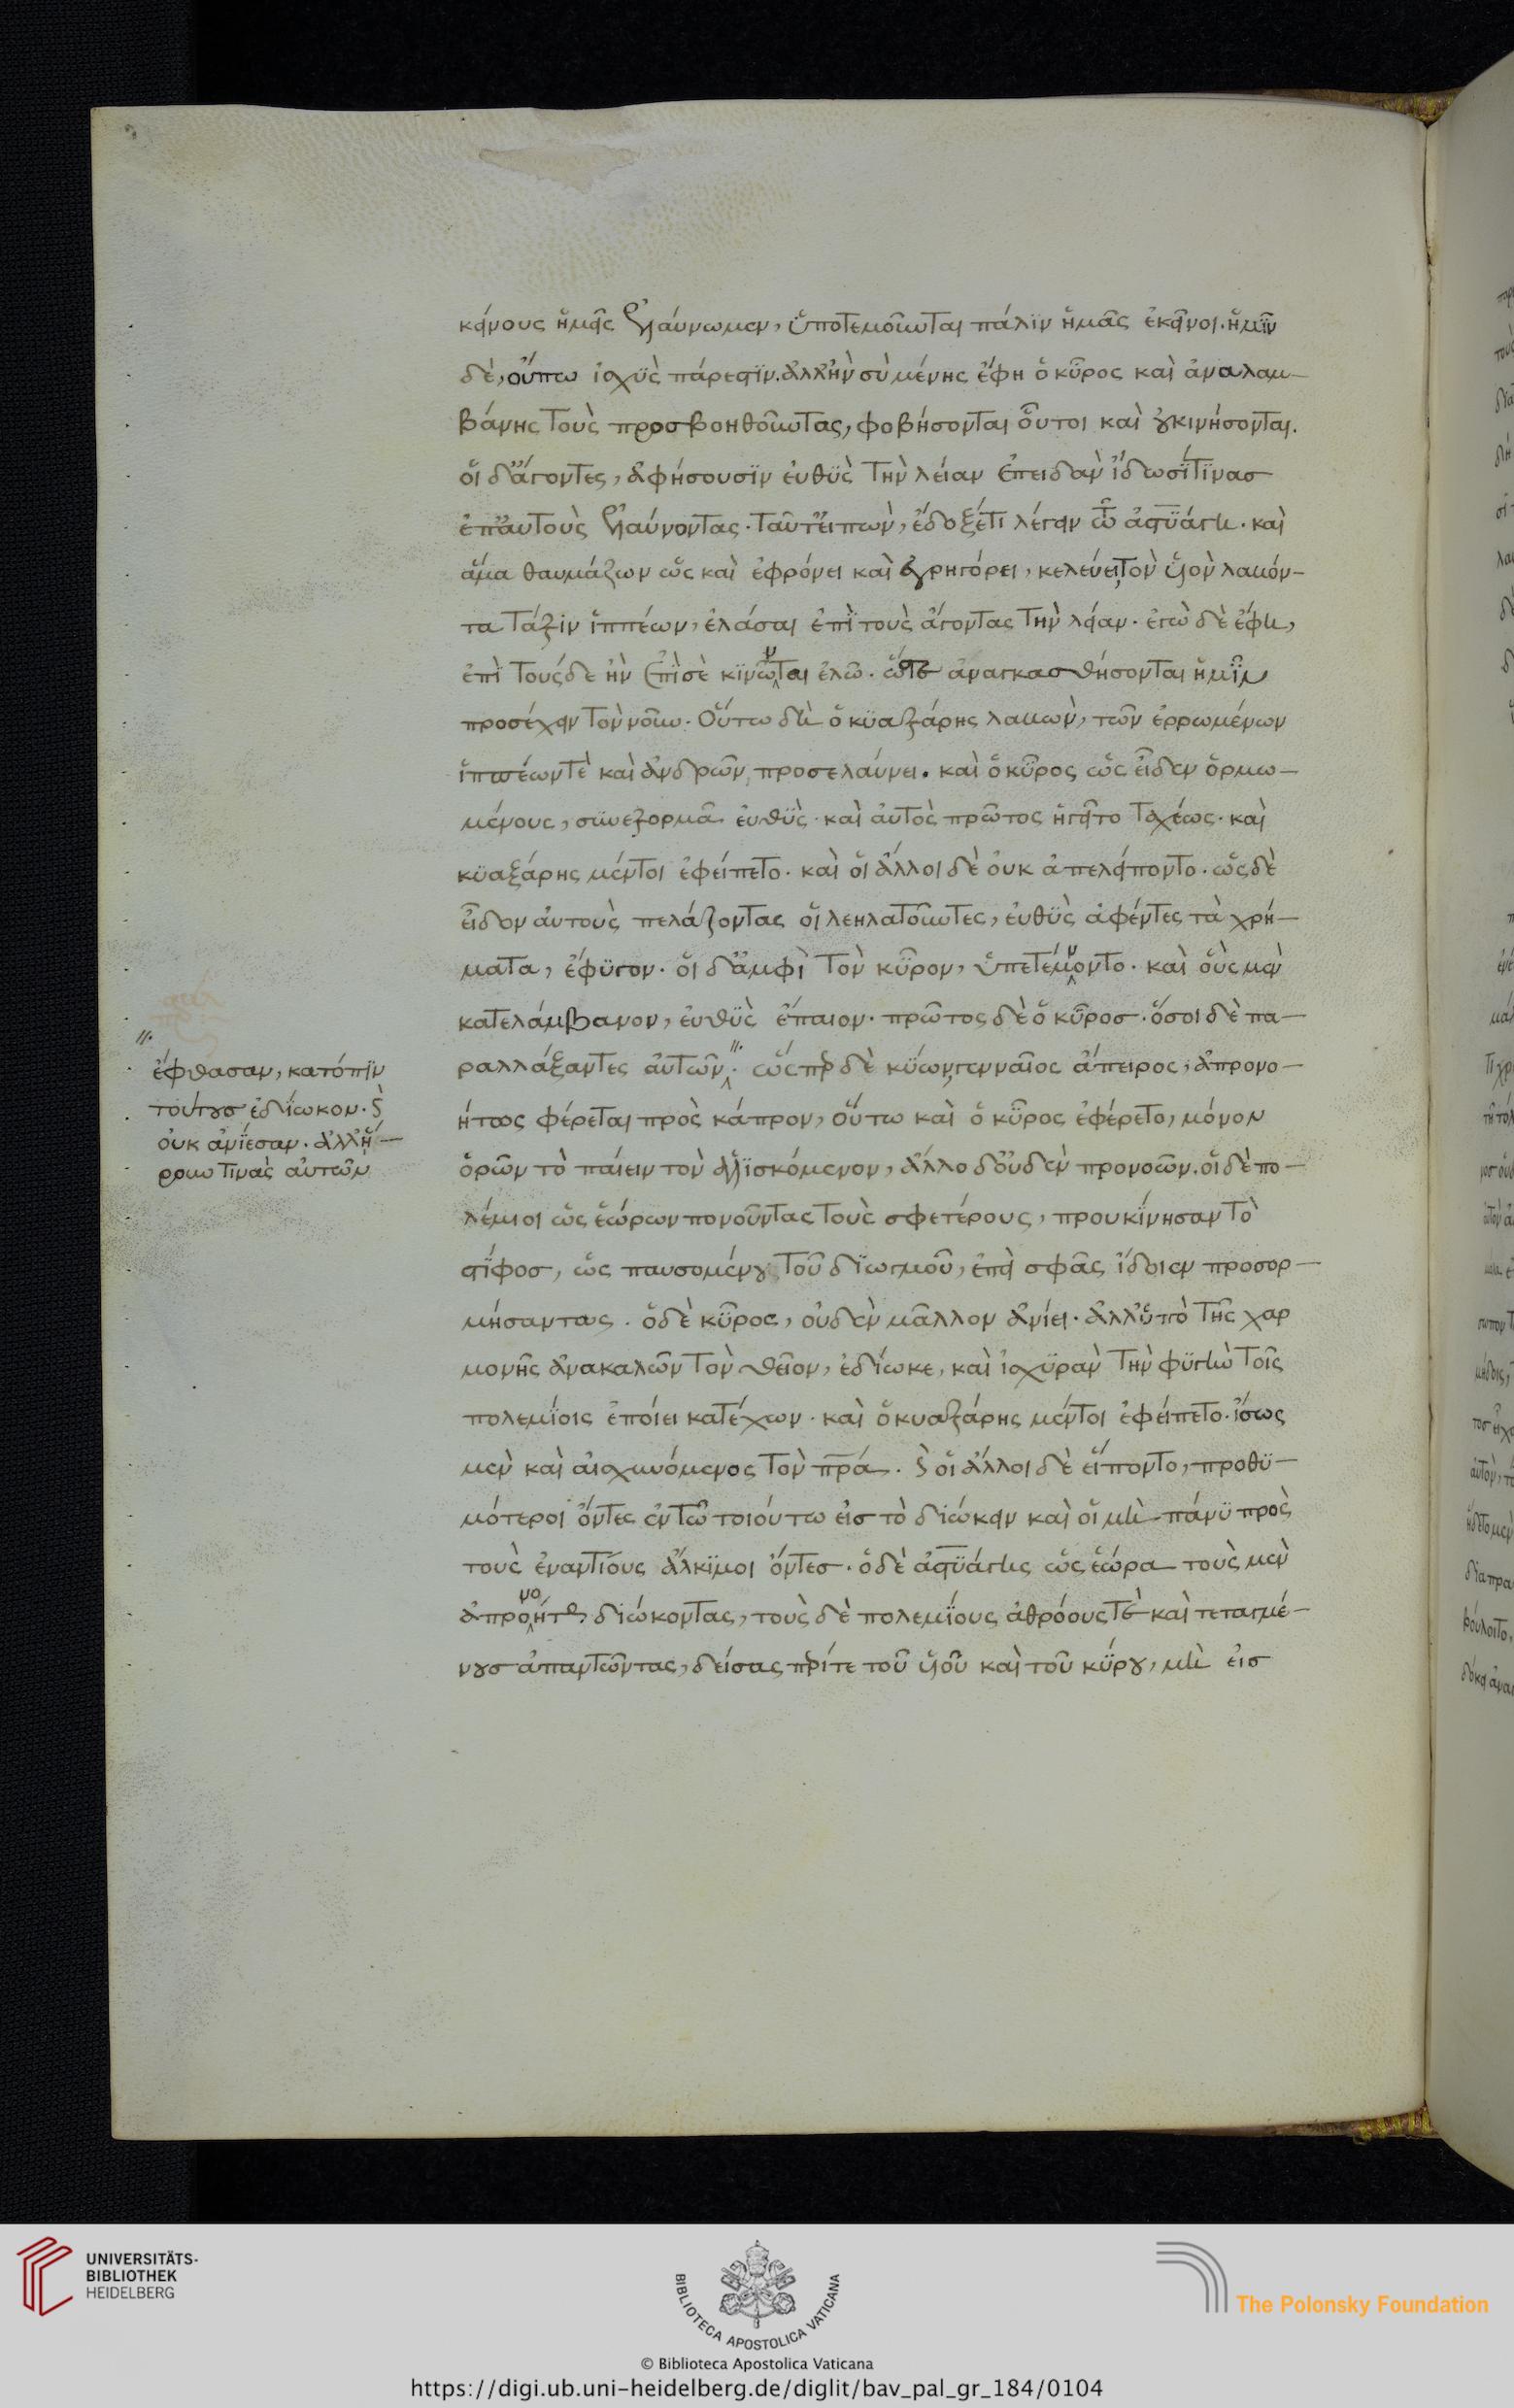 κείνους ἡμεῖς ἐλαύνωμεν, ὑποτεμοῦνται πάλιν ἡμᾶς ἐκεῖνοι. ἡμῖν
δὲ, οὔπω ἰσχὺς πάρεστιν. ἀλλἢν σὺ μένῃς ἔφη ὁ κῦρος καὶ ἀναλαμ-
βάνῃς τοὺς προσβοηθοῦντας, φοβήσονται οὗτοι καὶ οὐ κινήσονται.
οἱ δἄγοντες, ἀφήσουσιν εὐθὺς τὴν λείαν ἐπειδὰν ἴδωσί τινασ
ἐπαὐτοὺς ἐλαύνοντας. ταῦτεἰπὼν, ἔδοξέ τι λέγειν τῶ ἀστυάγη. καὶ
ἅμα θαυμάζων ὡς καὶ ἐφρόνει καὶ ἐγρηγόρει, κελεύει τὸν υἱὸν λαβόν-
τα τάξιν ἱππέων, ἐλάσαι ἐπὶ τοὺς ἄγοντας τὴν λείαν. ἐγὼ δὲ ἔφη,
ἐπὶ τούσδε ἢν ἐπὶ σὲ κινῶνται ἐλῶ. ὥστε ἀναγκασθήσονται ἡμῖν
προσέχειν τὸν νοῦν. Οὕτω δὴ ὁ κυαξάρης λαβὼν, τῶν ἐρρωμένων
ἱππέων τὲ καὶ ἀνδρῶν, προσελαύνει. καὶ ὁ κῦρος ὡς εἶδεν ὁρμω-
μένους, συνεξορμᾶ εὐθὺς. καὶ αὐτὸς πρῶτος ἡγεῖτο ταχέως. καὶ
κυαξάρης μέντοι ἐφείπετο. καὶ οἱ ἄλλοι δὲ οὐκ ἀπελείποντο. ὡς δὲ
εἶδον αὐτοὺς πελάζοντας οἱ λεηλατοῦντες, εὐθὺς ἀφέντες τὰ χρή-
ματα, ἔφυγον. οἱ δἀμφὶ τὸν κῦρον, ὑπετέμνοντο. καὶ οὓς μὲν
κατελάμβανον, εὐθὺς ἔπαιον. πρῶτος δὲ ὁ κῦροσ. ὅσοι δὲ πα-
ραλλάξαντες αὐτῶν //. ὥσπερ δὲ κύων, γενναῖος ἄπειρος, ἀπρονο-
ήτως φέρεται πρὸς κάπρον, οὕτω καὶ ὁ κῦρος ἐφέρετο, μόνον
ὁρῶν τὸ παίειν τὸν ἁλισκόμενον, ἄλλο δοὐδὲν προνοῶν. οἱ δὲ πο-
λέμιοι ὡς ἑώρων πονοῦντας τοὺς σφετέρους, προυκίνησαν τὸ
στίφοσ, ὡς παυσομένου τοῦ διωγμοῦ, ἐπεὶ σφᾶς ἴδοιεν προσορ-
μήσαντας. ὁ δὲ κῦρος, οὐδὲν μᾶλλον ἀνίει. ἀλλὑπὸ τῆς χαρ
μονῆς ἀνακαλῶν τὸν θεῖον, ἐδίωκε, καὶ ἰσχυρὰν τὴν φυγὴν τοῖς
πολεμίοις ἐποίει κατέχων. καὶ ὁ κυαξάρης μέντοι ἐφείπετο. ἴσως
μὲν καὶ αἰσχυνόμενος τὸν πρα. καὶ οἱ ἄλλοι δὲ εἵποντο, προθυ-
μότεροι ὄντες ἐν τῶ τοιούτω εἰσ τὸ διώκειν καὶ οἱ μὴ πάνυ πρὸς
τοὺς ἐναντίους ἄλκιμοι ὄντεσ. ὁ δὲ ἀστυάγης ὡς ἑώρα τοὺς μὲν
ἀπρονοήτως διώκοντας, τοὺς δὲ πολεμίους ἀθρόους τὲ καὶ τεταγμέ-
νουσ ἀπαντῶντας, δείσας περί τε τοῦ υἱοῦ καὶ τοῦ κύρου, μὴ εἰσ
//.
ἔφθασαν, κατόπιν
τούτουσ ἐδίωκον. καὶ
οὐκ ἀνίεσαν. ἀλλᾕ-
ρουν τινὰς αὐτῶν
UNIVERSITÄTS-
BIBLIOTHEK
HEIDELBERG
BIBLIOTECA APOSTOLICA VATICANA
The Polonsky Foundation
© Biblioteca Apostolica Vaticana
https://digi.ub.uni-heidelberg.de/diglit/bav_pal_gr_184/0104